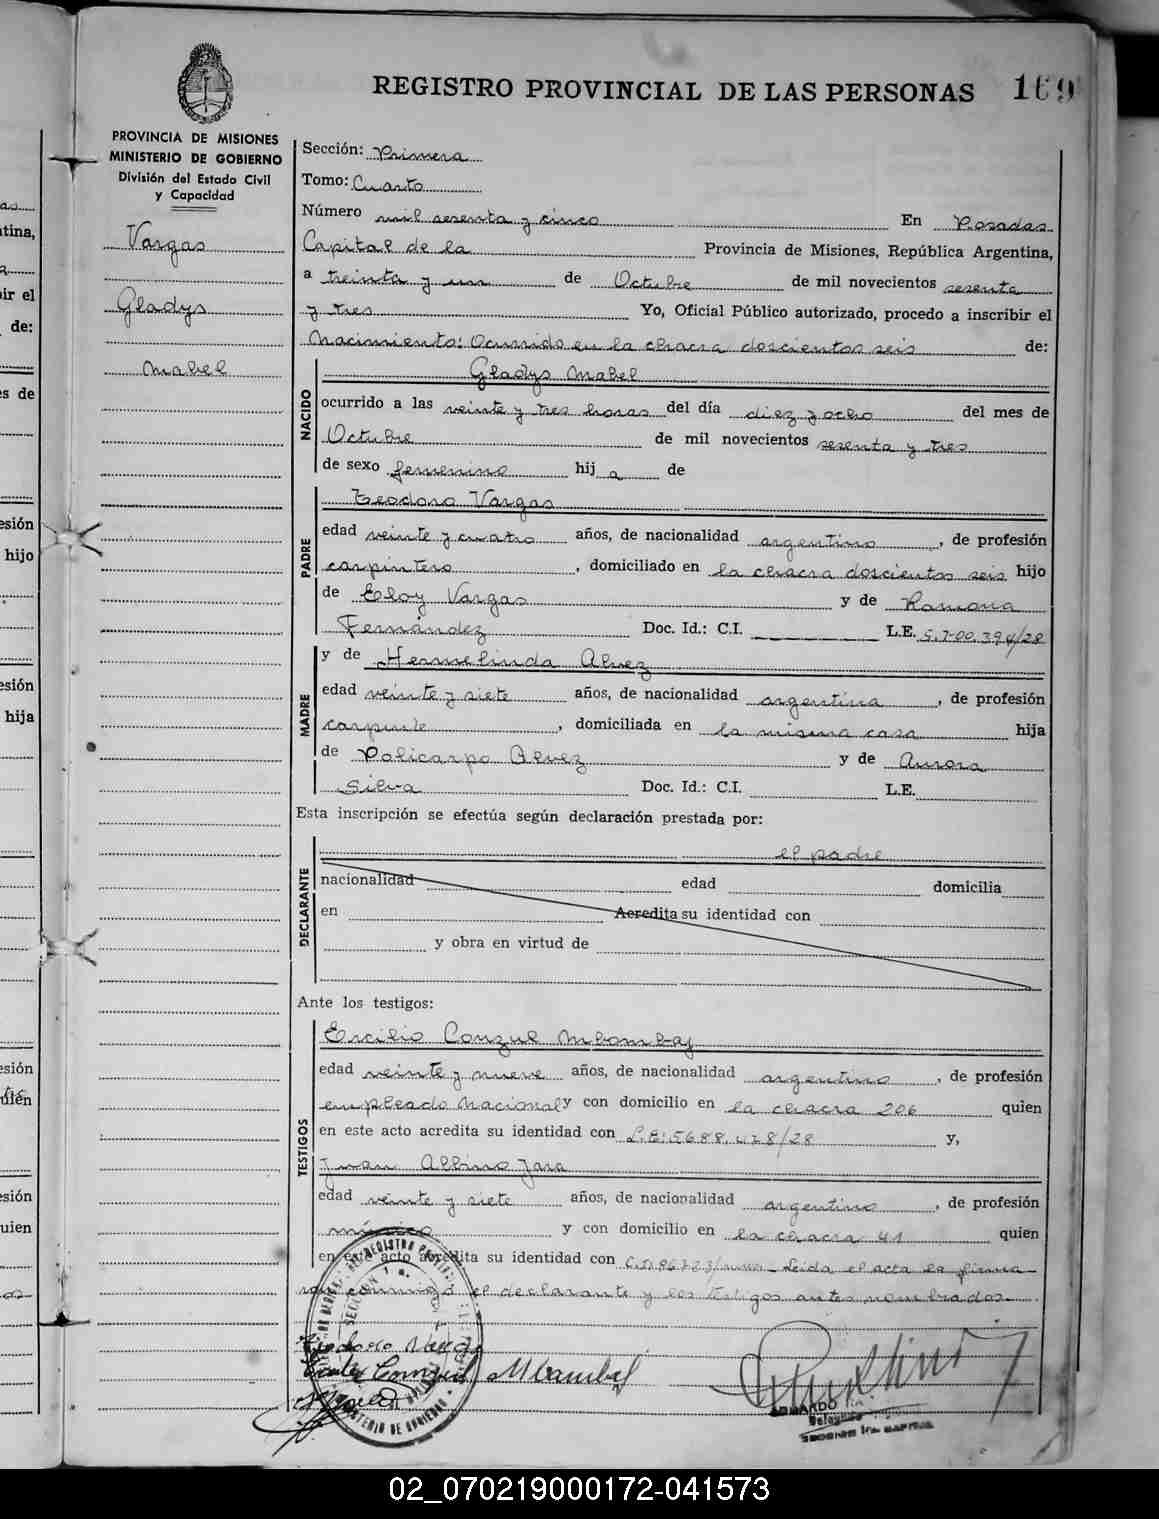 REGISTRO PROVINCIAL DE LAS PERSONAS 169
PROVINCIA DE MISIONES
MINISTERIO DE GOBIERNO
División del Estado Civil
y Capacidad
Vargas
Gladys
Mabel
Sección: Primera
Tomo: Cuarto
Número mil sesenta y cinco En Posadas
Capital de la Provincia de Misiones, República Argentina,
a treinta y un de Octubre de mil novecientos sesenta
y tres Yo, Oficial Público autorizado, procedo a inscribir el
Nacimiento: Ocurrido en la chacra doscientos seis de:
NACIDO
Gladys Mabel
ocurrido a las veinte y tres horas del día diez y ocho del mes de
Octubre de mil novecientos sesenta y tres
de sexo femenino hij a de
PADRE
Teodoro Vargas
edad veinte y cuatro años, de nacionalidad argentino, de profesión
carpintero, domiciliado en la chacra doscientos seis hijo
de Eloy Vargas y de Ramona
Fernández Doc. Id.: C.I. L.E. 5.700.394/28
y de Hermelinda Alvez
MADRE
edad veinte y siete años, de nacionalidad argentina, de profesión
, domiciliada en la misma casa hija
de Policarpo Alvez y de Aurora
Silva Doc. Id.: C.I. L.E.
Esta inscripción se efectúa según declaración prestada por:
DECLARANTE
el padre
nacionalidad edad domicilia
en Acredita su identidad con
y obra en virtud de
Ante los testigos:
TESTIGOS
Ercilio Conzul Mbombaj
edad veinte y nueve años, de nacionalidad argentino, de profesión
empleado Nacional y con domicilio en la chacra 206 quien
en este acto acredita su identidad con L.E. 5688.428/28 y,
Juan Albino Jara
edad veinte y siete años, de nacionalidad argentino, de profesión
músico y con domicilio en la chacra 41 quien
en este acto acredita su identidad con Leida el acta la firma
conmigo el declarante y los testigos antes nombrados.
Teodoro Vargas
SECCION 1a.
MINISTERIO DE GOBIERNO
02_070219000172-041573